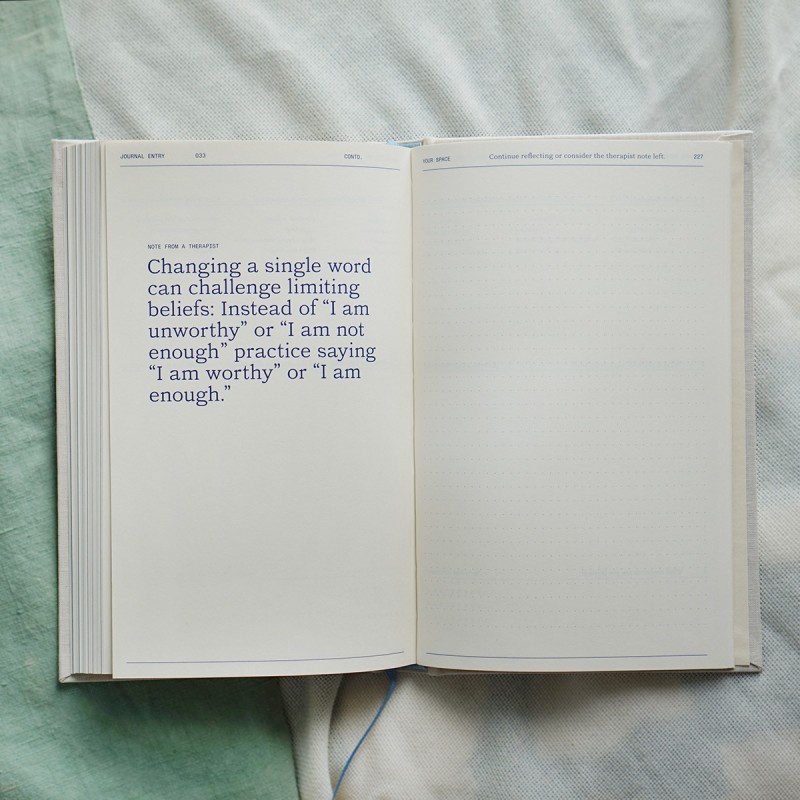 JOURNAL ENTRY 033 CONTD.
NOTE FROM A THERAPIST
Changing a single word
can challenge limiting
beliefs: Instead of “I am
unworthy” or “I am not
enough” practice saying
“I am worthy” or “I am
enough.”
YOUR SPACE Continue reflecting or consider the therapist note left. 227